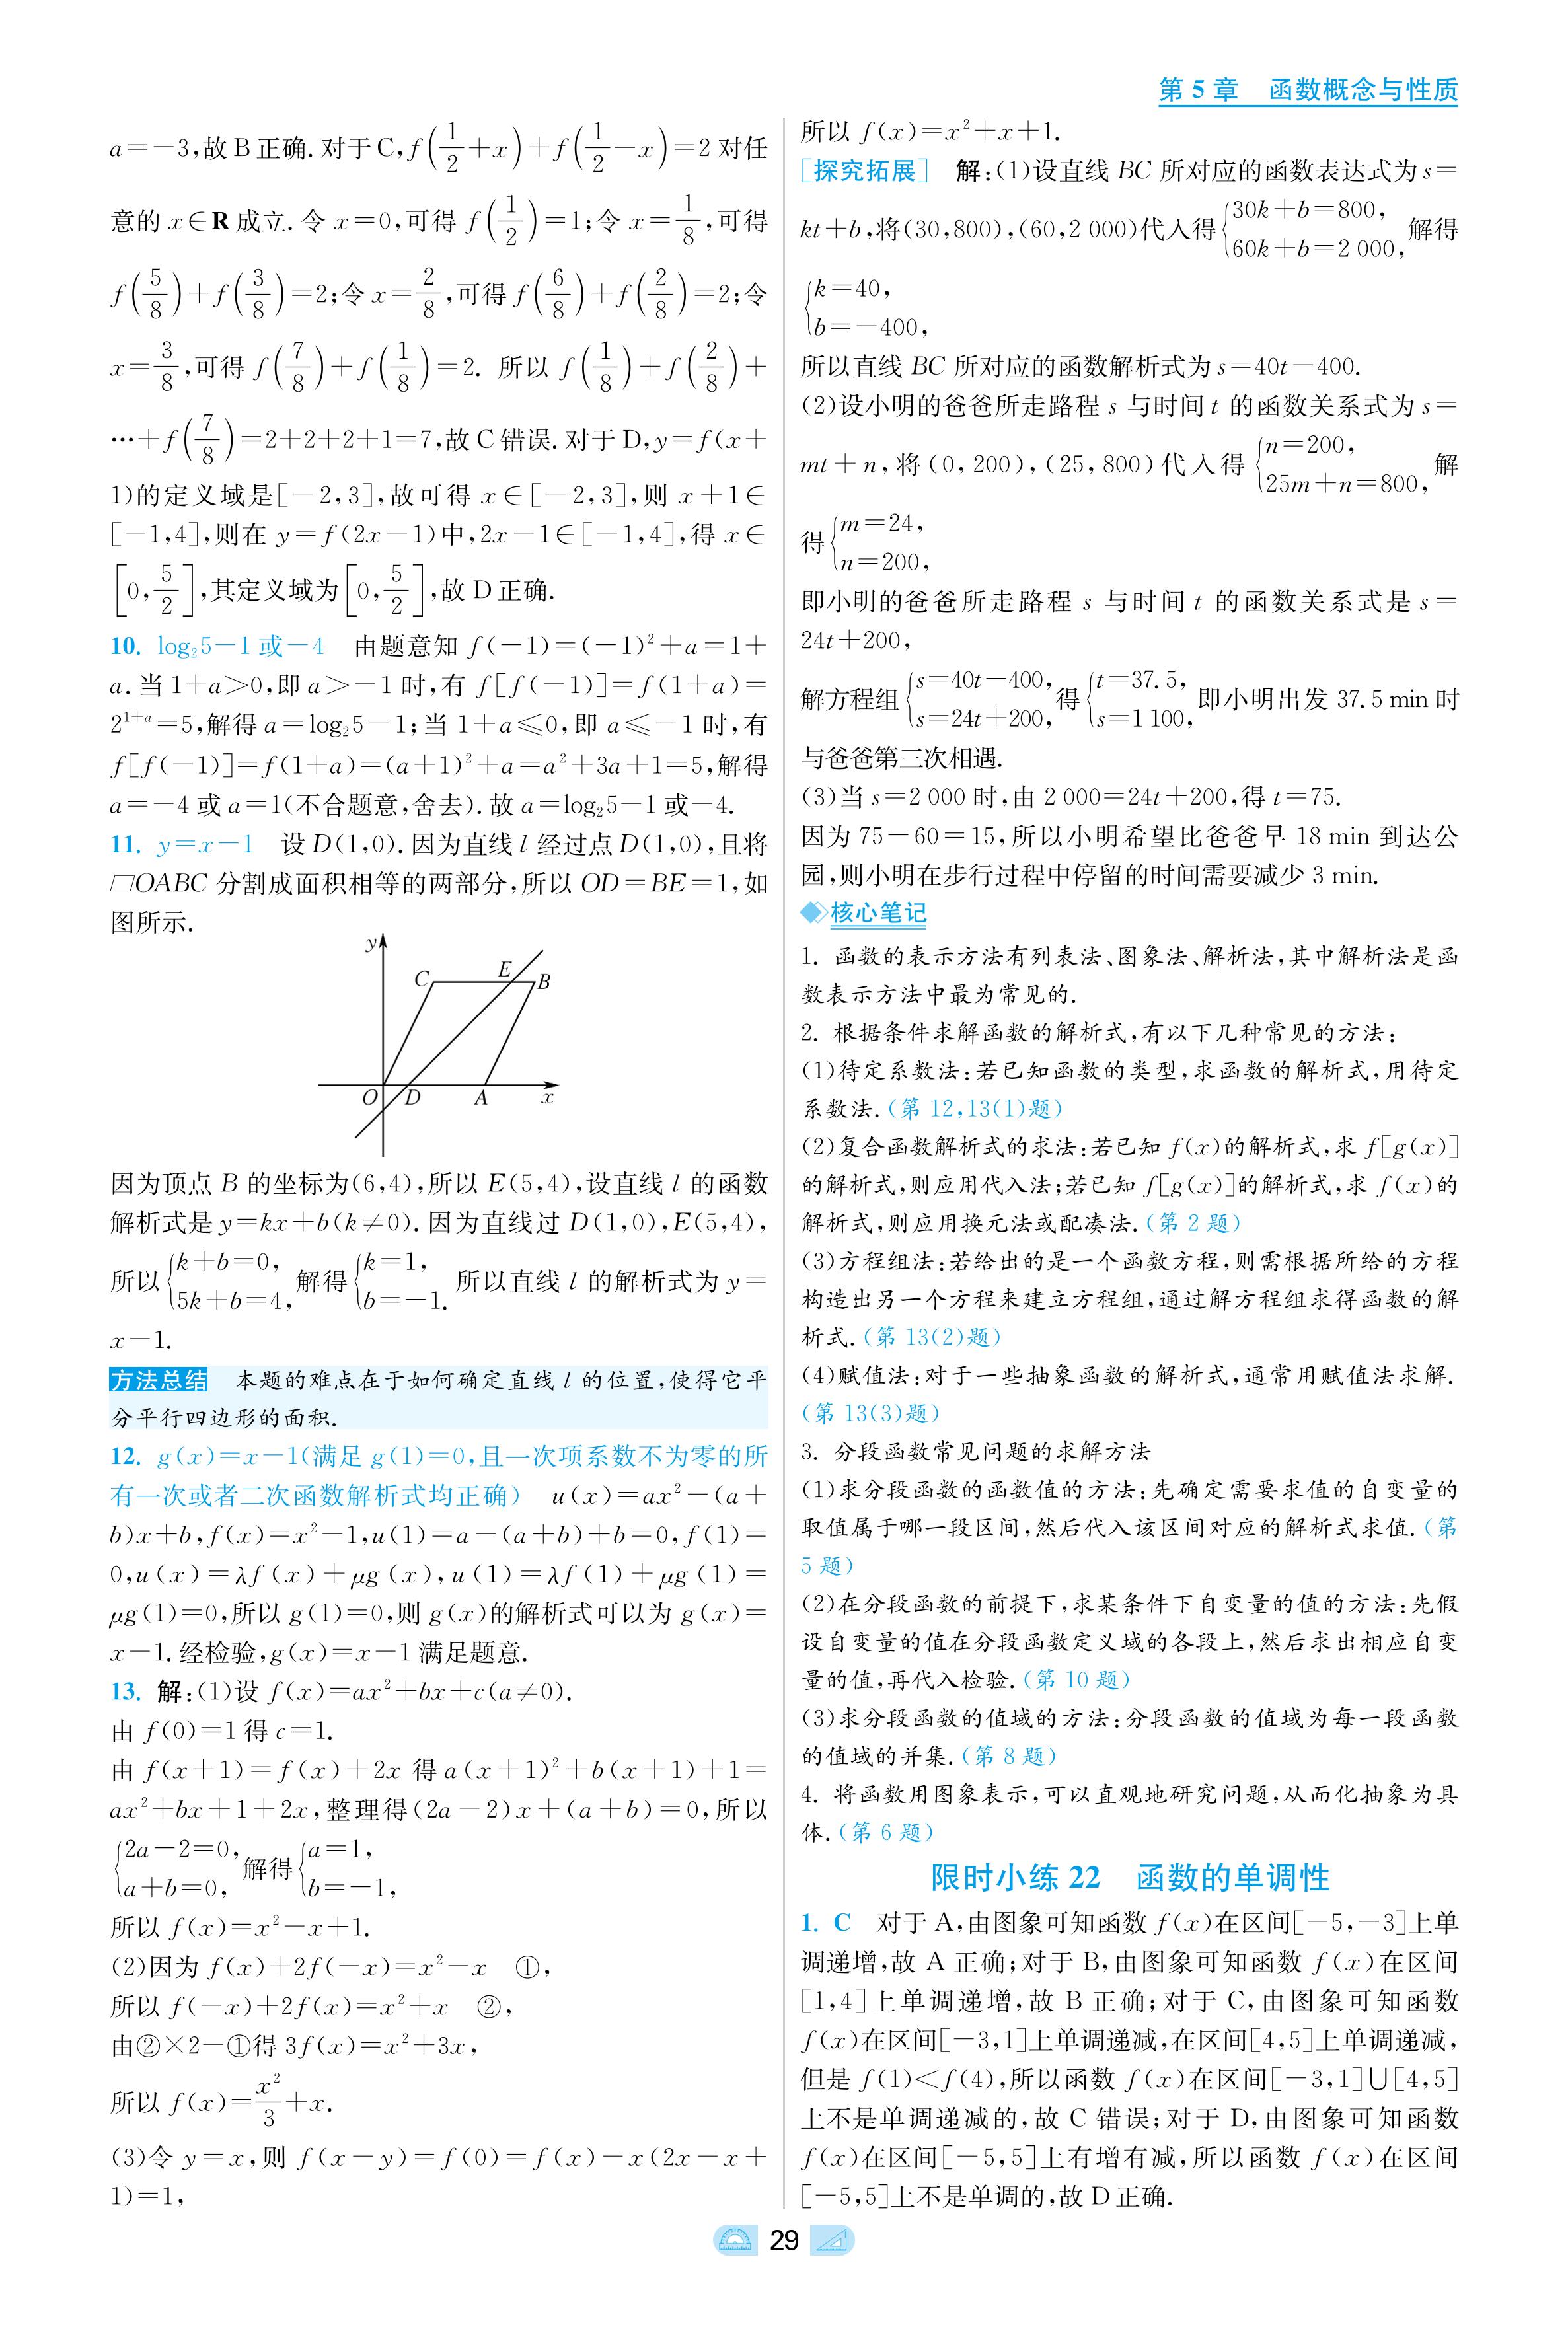 第 5 章　函数概念与性质
a=-3,故 B 正确. 对于 C, f(1/2+x)+f(1/2-x)=2 对任
意的 x∈R 成立. 令 x=0,可得 f(1/2)=1;令 x=1/8,可得
f(5/8)+f(3/8)=2;令 x=2/8,可得 f(6/8)+f(2/8)=2;令
x=3/8,可得 f(7/8)+f(1/8)=2. 所以 f(1/8)+f(2/8)+
…+f(7/8)=2+2+2+1=7,故 C 错误. 对于 D,y=f(x+
1)的定义域是[-2,3],故可得 x∈[-2,3],则 x+1∈
[-1,4],则在 y=f(2x-1)中,2x-1∈[-1,4],得 x∈
[0,5/2],其定义域为[0,5/2],故 D 正确.
10. log₂5-1 或-4　由题意知 f(-1)=(-1)²+a=1+
a. 当 1+a>0,即 a>-1 时,有 f[f(-1)]=f(1+a)=
2¹⁺ᵃ=5,解得 a=log₂5-1;当 1+a≤0,即 a≤-1 时,有
f[f(-1)]=f(1+a)=(a+1)²+a=a²+3a+1=5,解得
a=-4 或 a=1(不合题意,舍去). 故 a=log₂5-1 或-4.
11. y=x-1　设 D(1,0). 因为直线 l 经过点 D(1,0),且将
▱OABC 分割成面积相等的两部分,所以 OD=BE=1,如
图所示.
y
C E B
O D A x
因为顶点 B 的坐标为(6,4),所以 E(5,4),设直线 l 的函数
解析式是 y=kx+b(k≠0). 因为直线过 D(1,0),E(5,4),
所以{k+b=0, 5k+b=4, 解得{k=1, b=-1. 所以直线 l 的解析式为 y=
x-1.
方法总结　本题的难点在于如何确定直线 l 的位置,使得它平
分平行四边形的面积.
12. g(x)=x-1(满足 g(1)=0,且一次项系数不为零的所
有一次或者二次函数解析式均正确)　u(x)=ax²-(a+
b)x+b,f(x)=x²-1,u(1)=a-(a+b)+b=0,f(1)=
0,u(x)=λf(x)+μg(x),u(1)=λf(1)+μg(1)=
μg(1)=0,所以 g(1)=0,则 g(x)的解析式可以为 g(x)=
x-1. 经检验,g(x)=x-1 满足题意.
13. 解:(1)设 f(x)=ax²+bx+c(a≠0).
由 f(0)=1 得 c=1.
由 f(x+1)=f(x)+2x 得 a(x+1)²+b(x+1)+1=
ax²+bx+1+2x,整理得(2a-2)x+(a+b)=0,所以
{2a-2=0, a+b=0, 解得{a=1, b=-1,
所以 f(x)=x²-x+1.
(2)因为 f(x)+2f(-x)=x²-x　①,
所以 f(-x)+2f(x)=x²+x　②,
由②×2-①得 3f(x)=x²+3x,
所以 f(x)=x²/3+x.
(3)令 y=x,则 f(x-y)=f(0)=f(x)-x(2x-x+
1)=1,
所以 f(x)=x²+x+1.
[探究拓展]　解:(1)设直线 BC 所对应的函数表达式为 s=
kt+b,将(30,800),(60,2 000)代入得{30k+b=800, 60k+b=2 000, 解得
{k=40, b=-400,
所以直线 BC 所对应的函数解析式为 s=40t-400.
(2)设小明的爸爸所走路程 s 与时间 t 的函数关系式为 s=
mt+n,将(0,200),(25,800)代入得{n=200, 25m+n=800, 解
得{m=24, n=200,
即小明的爸爸所走路程 s 与时间 t 的函数关系式是 s=
24t+200,
解方程组{s=40t-400, s=24t+200, 得{t=37.5, s=1 100, 即小明出发 37.5 min 时
与爸爸第三次相遇.
(3)当 s=2 000 时,由 2 000=24t+200,得 t=75.
因为 75-60=15,所以小明希望比爸爸早 18 min 到达公
园,则小明在步行过程中停留的时间需要减少 3 min.
核心笔记
1. 函数的表示方法有列表法、图象法、解析法,其中解析法是函
数表示方法中最为常见的.
2. 根据条件求解函数的解析式,有以下几种常见的方法:
(1)待定系数法:若已知函数的类型,求函数的解析式,用待定
系数法.(第 12,13(1)题)
(2)复合函数解析式的求法:若已知 f(x)的解析式,求 f[g(x)]
的解析式,则应用代入法;若已知 f[g(x)]的解析式,求 f(x)的
解析式,则应用换元法或配凑法.(第 2 题)
(3)方程组法:若给出的是一个函数方程,则需根据所给的方程
构造出另一个方程来建立方程组,通过解方程组求得函数的解
析式.(第 13(2)题)
(4)赋值法:对于一些抽象函数的解析式,通常用赋值法求解.
(第 13(3)题)
3. 分段函数常见问题的求解方法
(1)求分段函数的函数值的方法:先确定需要求值的自变量的
取值属于哪一段区间,然后代入该区间对应的解析式求值.(第
5 题)
(2)在分段函数的前提下,求某条件下自变量的值的方法:先假
设自变量的值在分段函数定义域的各段上,然后求出相应自变
量的值,再代入检验.(第 10 题)
(3)求分段函数的值域的方法:分段函数的值域为每一段函数
的值域的并集.(第 8 题)
4. 将函数用图象表示,可以直观地研究问题,从而化抽象为具
体.(第 6 题)
限时小练 22　函数的单调性
1. C　对于 A,由图象可知函数 f(x)在区间[-5,-3]上单
调递增,故 A 正确;对于 B,由图象可知函数 f(x)在区间
[1,4]上单调递增,故 B 正确;对于 C,由图象可知函数
f(x)在区间[-3,1]上单调递减,在区间[4,5]上单调递减,
但是 f(1)<f(4),所以函数 f(x)在区间[-3,1]∪[4,5]
上不是单调递减的,故 C 错误;对于 D,由图象可知函数
f(x)在区间[-5,5]上有增有减,所以函数 f(x)在区间
[-5,5]上不是单调的,故 D 正确.
29